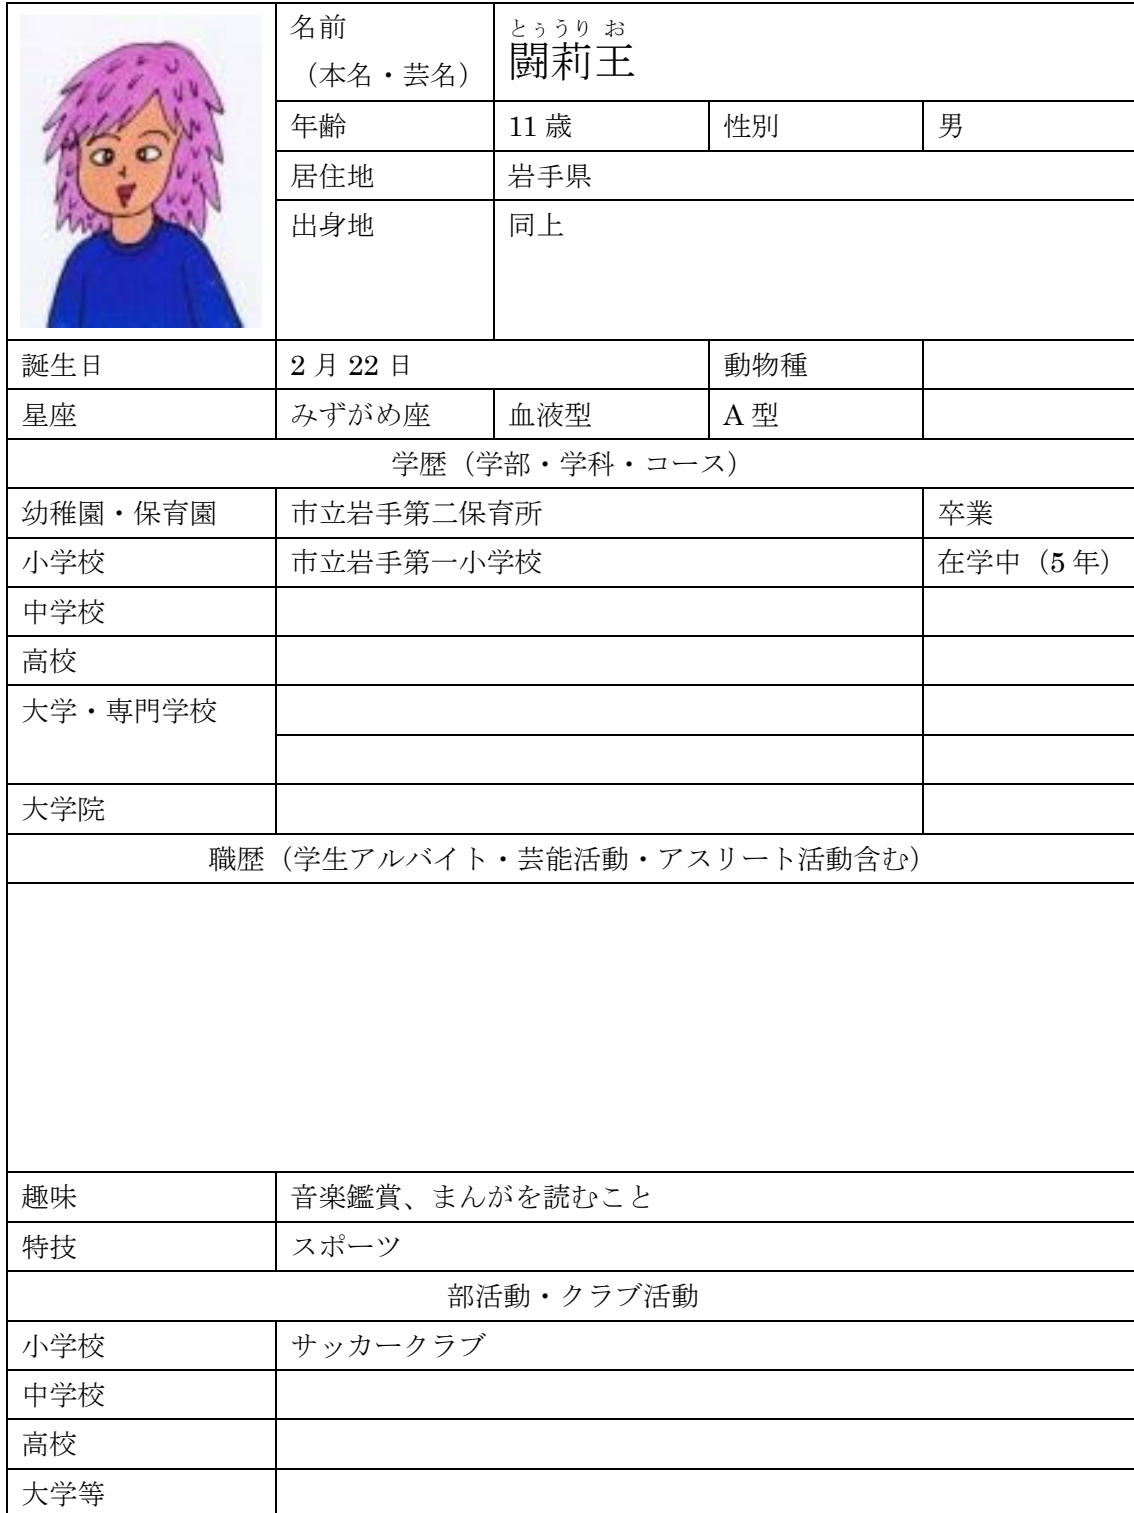 名前
（本名・芸名）
とぅうり お
闘莉王
年齢 11歳 性別 男
居住地 岩手県
出身地 同上
誕生日 2月22日 動物種
星座 みずがめ座 血液型 A型
学歴（学部・学科・コース）
幼稚園・保育園 市立岩手第二保育所 卒業
小学校 市立岩手第一小学校 在学中（5年）
中学校
高校
大学・専門学校
大学院
職歴（学生アルバイト・芸能活動・アスリート活動含む）
趣味 音楽鑑賞、まんがを読むこと
特技 スポーツ
部活動・クラブ活動
小学校 サッカークラブ
中学校
高校
大学等